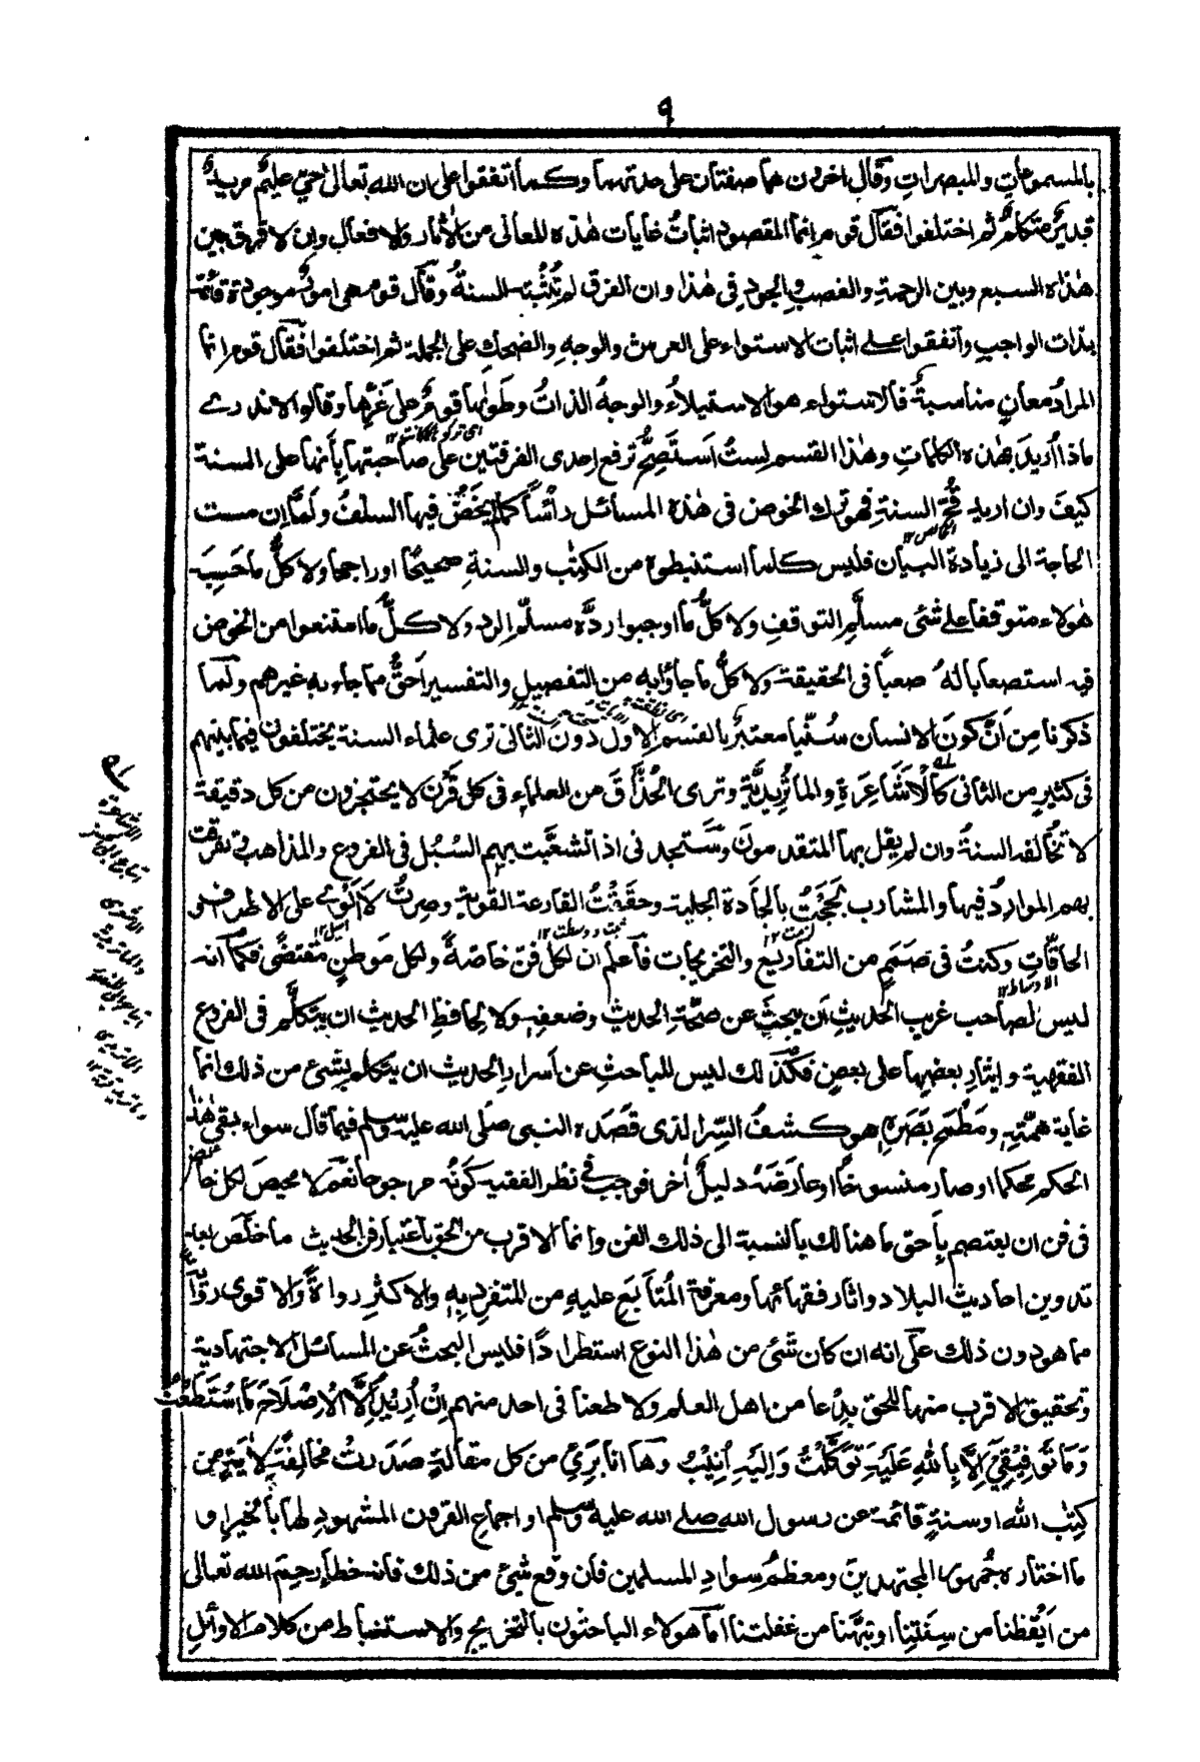 ٩
بالمسموعات والمبصرات وقال اخرون هما صفتان على حدتهما وكما اتفقوا على ان الله تعالى حي عليم مريد
قدير متكلم ثم اختلفوا فقال قوم انما المقصود اثبات غايات هذه المعاني من الاثار والافعال وان لا فرق بين
هذه السبع وبين الرحمة والغضب والجود في هذا وان الفرق لم تثبته السنة وقال قوم هي امور موجودة قائمة
بذات الواجب واتفقوا على اثبات الاستواء على العرش والوجه والضحك على الجملة ثم اختلفوا فقال قوم انما
المراد معان مناسبة فالاستواء هو الاستيلاء والوجه الذات وطواها قوم على غرها وقالوا لا ندرے
ماذا اريد بهذه الكلمات وهذا القسم لست استصح ترفع احدى الفرقتين على صاحبتها بانها على السنة
كيف وان اريد قح السنة فهو ترك الخوض في هذه المسائل رأسا كما لم يخض فيها السلف ولما ان مست
الحاجة الى زيادة البيان فليس كلما استنبطوه من الكتب والسنة صحيحا او راجحا ولا كل ما حسبه
هؤلاء متوقفا على شئ مسلم التوقف ولا كل ما اوجبوا رده مسلم الرد ولا كل ما امتنعوا من الخوض
فيه استصعابا له صعبا في الحقيقة ولا كل ما جاؤا به من التفصيل والتفسير احق مما جاء به غيرهم ولما
ذكرنا من ان كون الانسان سنيا معتبر بالقسم الاول دون الثاني ترى علماء السنة يختلفون فيما بينهم
في كثير من الثاني كالاشاعرة والماتريدية وترى الحذاق من العلماء في كل قرن لا يحتجزون من كل دقيقة
لا تخالفه السنة وان لم يقل بها المتقدمون وستجدني اذا تشعبت بهم السبل في الفروع والمذاهب وتفرقت
بهم الموارد فيها والمشارب لججت بالجادة الجلية وحققت القارعة القوية وصرت لا الوى على الاطراف و
الحافات وكنت في صمم من التفاريع والتخريجات فاعلم ان لكل فن خاصة ولكل موطن مقتضى فكما انه
ليس لصاحب غريب الحديث ان يبحث عن صحة الحديث وضعفه ولا لحافظ الحديث ان يتكلم في الفروع
الفقهية وايثار بعضها على بعض فكذلك ليس للباحث عن اسرار الحديث ان يتكلم بشئ من ذلك انما
غاية همته ومطمح بصره هو كشف السر الذى قصده النبي صلى الله عليه وسلم فيما قال سواء بقى هذا
الحكم محكما او صار منسوخا او عارضه دليل اخر فوجب في نظر الفقيه كونه مرجوحا نعم لا محيص لكل خائض
في فن ان يعتصم باحق ما هنالك بالنسبة الى ذلك الفن وانما الاقرب من الحق باعتبار فن الحديث ما خلص بعد
تدوين احاديث البلاد واثار فقهائها ومعرفة المتابع عليه من المتفرد به والاكثر رواة والاقوى رواية
مما هو دون ذلك على انه ان كان شئ من هذا النوع استطرادا فليس البحث عن المسائل الاجتهادية
وتحقيق الاقرب منها للحق بدعا من اهل العلم ولا طعنا في احد منهم ان اريد الا الاصلاح ما استطعت
وما توفيقي الا بالله عليه توكلت واليه انيب وها انا برئ من كل مقالة صدرت مخالفة لاية من
كتب الله او سنة قائمة عن رسول الله صلى الله عليه وسلم او اجماع القرون المشهود لها بالخير او
ما اختاره جمهور المجتهدين ومعظم سواد المسلمين فان وقع شئ من ذلك فانه خطأ رحم الله تعالى
من ايقظنا من سنتنا او نبهنا من غفلتنا اما هؤلاء الباحثون بالتخريج والاستنباط من كلام الاوائل